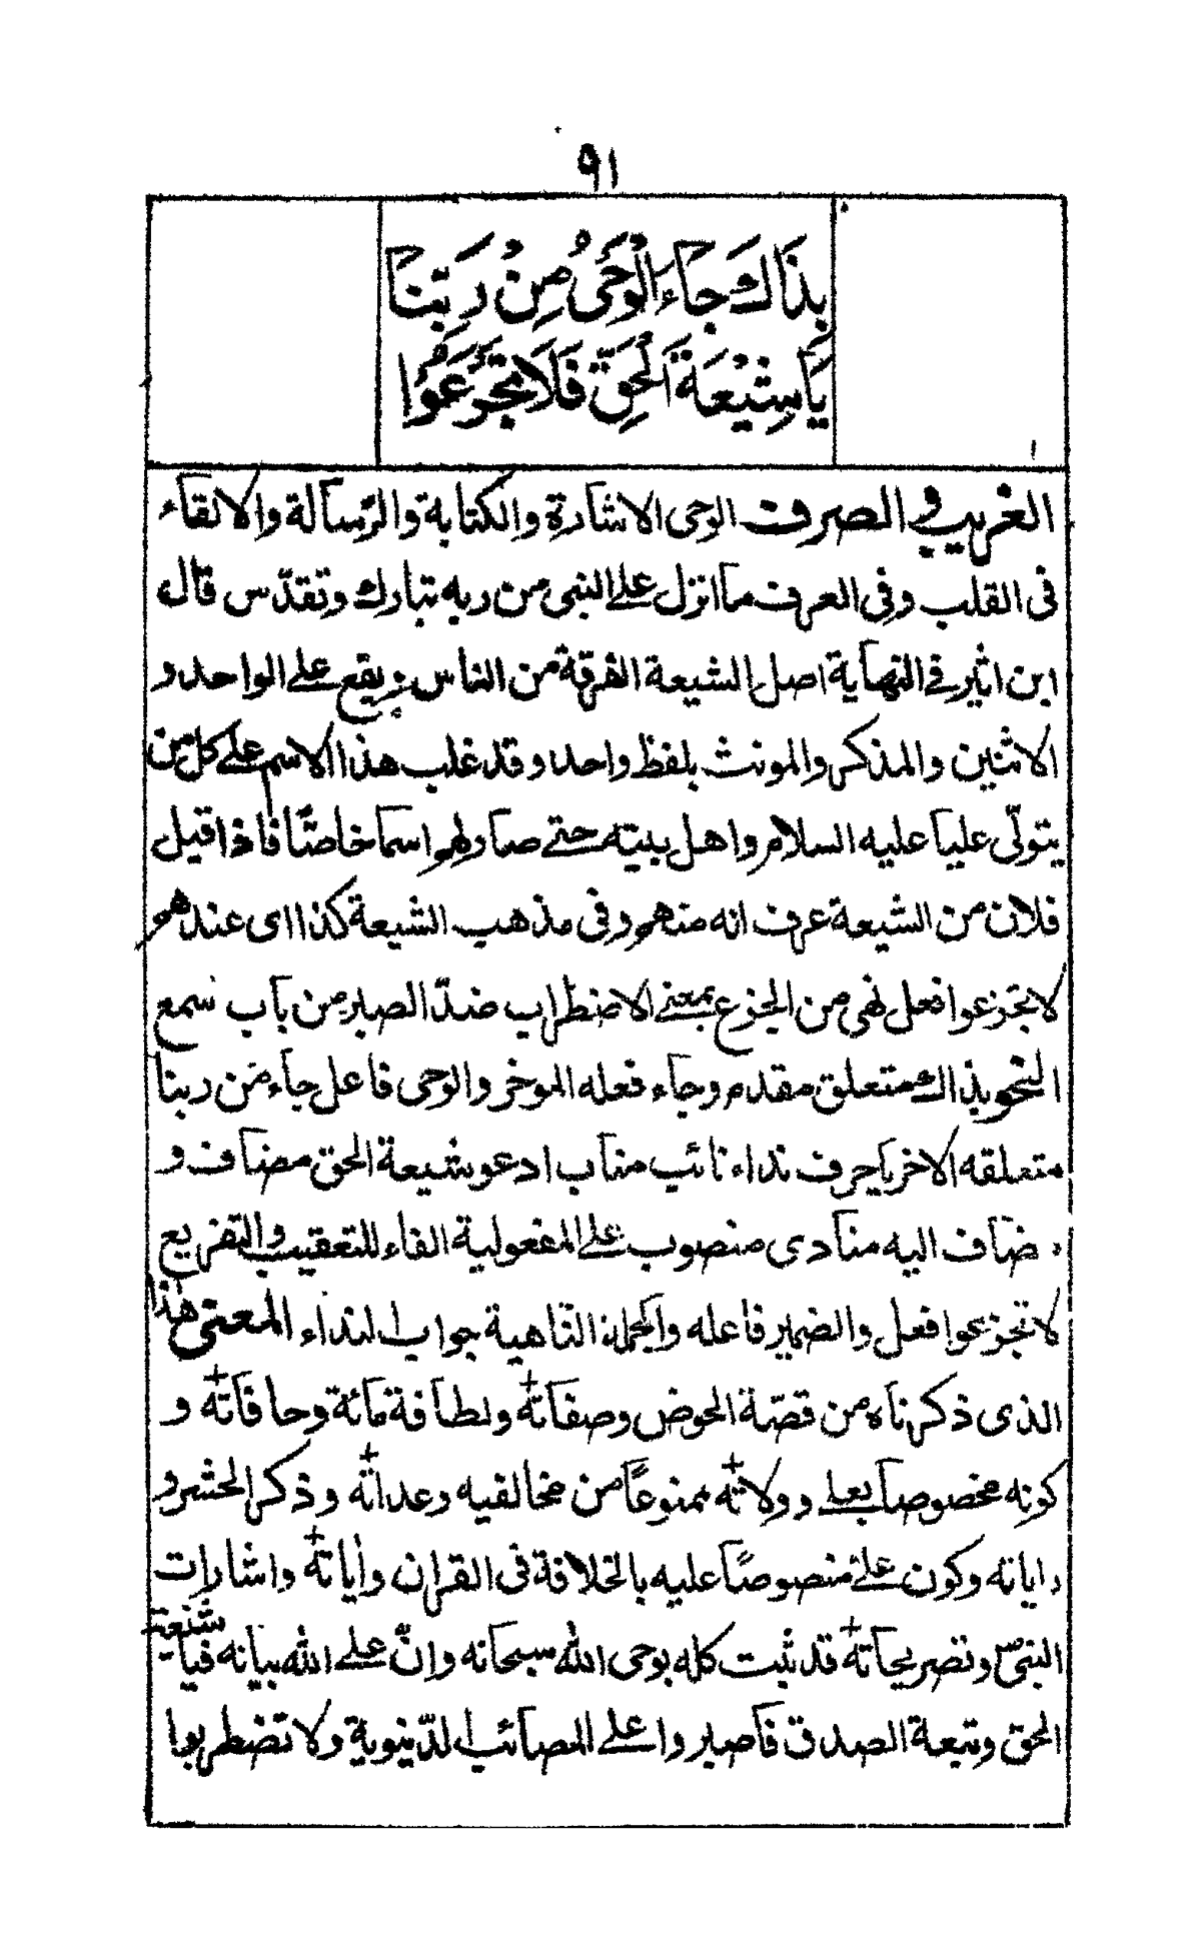 ٩١
بِذَاكَ جَاءَ الْوَحْيُ مِنْ رَبِّنَا
يَا شِيْعَةَ الْحَقِّ فَلَا تَجْزَعُوْا
الغريب في الصرف الوحى الاشارة والكتابة والرسالة والالقاء
فى القلب وفى العرف ما انزل على النبى من ربه تبارك وتقدّس قال
ابن اثير فى النهاية اصل الشيعة الفرقة من الناس يقع على الواحد و
الاثنين والمذكر والمونث بلفظ واحد وقد غلب هذا الاسم على كل من
يتولّى عليا عليه السلام واهل بيته حتى صار لهم اسما خاصًّا فاذا قيل
فلان من الشيعة عرف انه منهم وفى مذهب الشيعة كذا اى عندهم
لا تجزعوا فعل نهى من الجزع بمعنى الاضطراب ضدّ الصبر من باب سمع
النحو بذاك متعلق مقدم وجاء فعله الموخر والوحى فاعل جاء من ربنا
متعلقه الاخر يا حرف نداء نائب مناب ادعو شيعة الحق مضاف و
مضاف اليه منادى منصوب على المفعولية الفاء للتعقيب والتفريع
لا تجزعوا فعل والضمير فاعله والجملة الناهية جواب لنداء المعنى هذا
الذى ذكرناه من قصّة الحوض وصفاته ولطافة مائة وحافاته و
كونه مخصوصا بعلى وولاته ممنوعًا من مخالفيه وعداته وذكر الحشر و
راياته وكون على منصوصًا عليه بالخلافة فى القران واياته واشارات
النبى ص وتصريحاته قد ثبت كله بوحى الله سبحانه وانّ على الله بيانه فيا شيعة
الحق وتبعة الصدق فاصبروا على المصائب الدّنيوية ولا تضطربوا